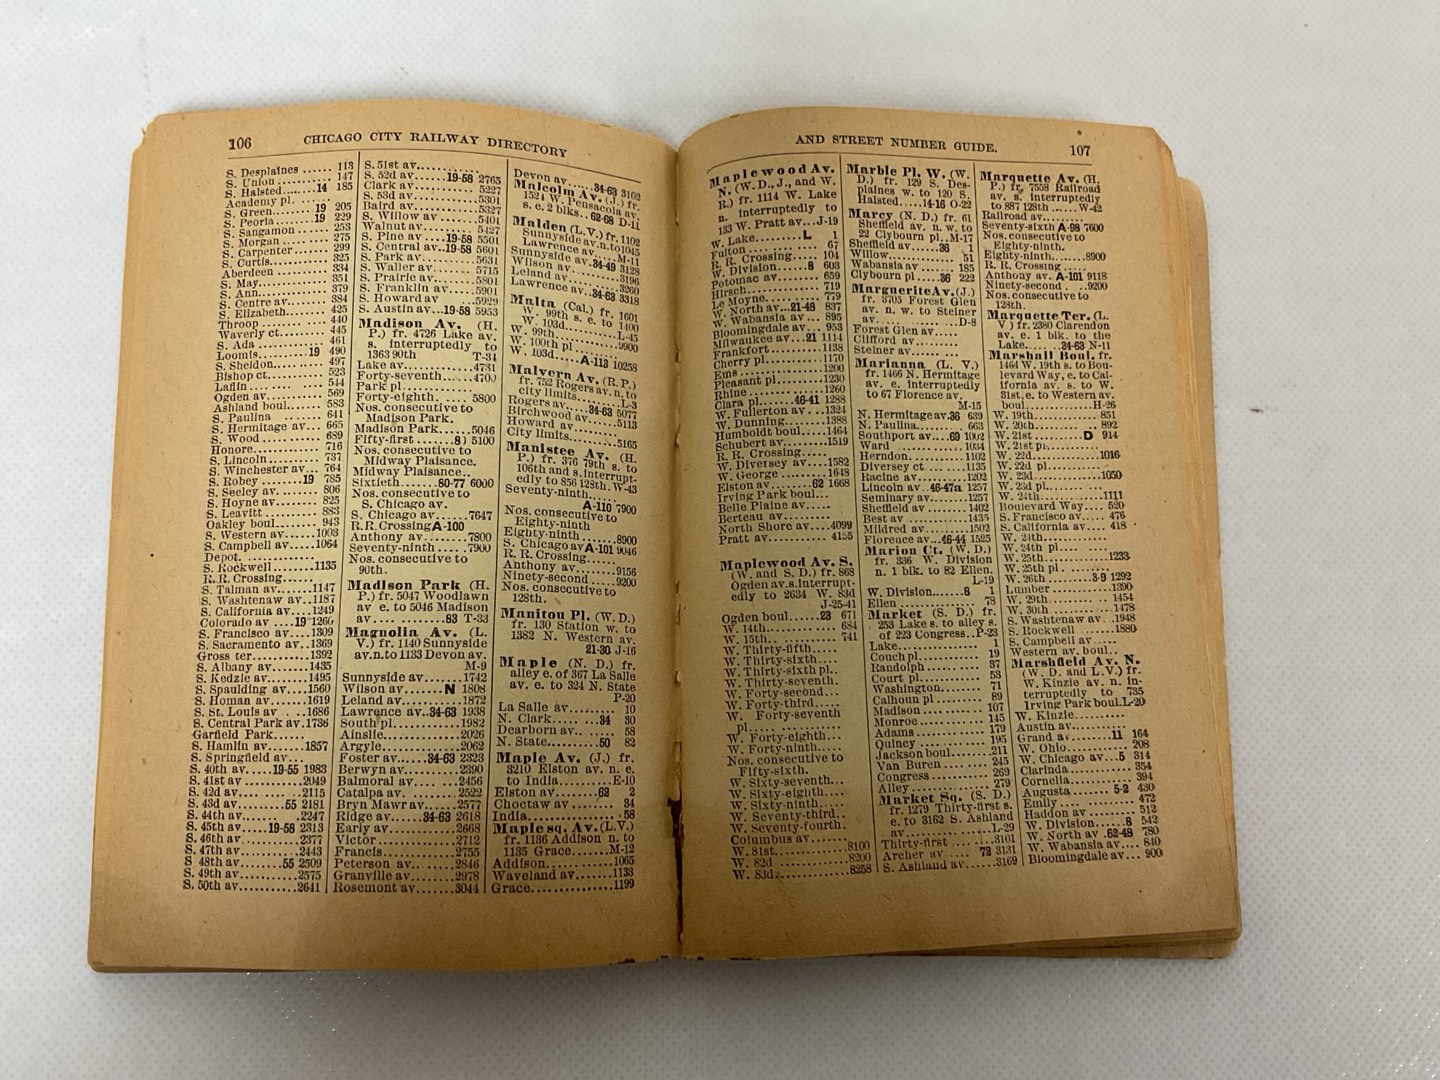 106 CHICAGO CITY RAILWAY DIRECTORY
S. Desplaines 113
S. Union 147
S. Halsted 14 185
Academy pl.
S. Green 19 205
S. Peoria 19 229
S. Sangamon 253
S. Morgan 275
S. Carpenter 299
S. Curtis 325
Aberdeen 334
S. May 351
S. Ann 379
S. Centre av 384
S. Elizabeth 425
Throop 440
Waverly ct. 445
S. Ada 461
Loomis 19 490
S. Sheldon 497
Bishop ct. 523
Laflin 544
Ogden av 569
Ashland boul 583
S. Paulina 641
S. Hermitage av 665
S. Wood 689
Honore 716
S. Lincoln 737
S. Winchester av 764
S. Robey 19 785
S. Seeley av 806
S. Hoyne av 825
S. Leavitt 883
Oakley boul 943
S. Western av 1003
S. Campbell av 1064
Depot.
S. Rockwell 1135
R. R. Crossing
S. Talman av 1147
S. Washtenaw av 1187
S. California av 1249
Colorado av 19 1260
S. Francisco av 1309
S. Sacramento av 1369
Gross ter 1392
S. Albany av 1435
S. Kedzie av 1495
S. Spaulding av 1560
S. Homan av 1619
S. St. Louis av 1686
S. Central Park av. 1736
Garfield Park
S. Hamlin av 1857
S. Springfield av
S. 40th av 19-55 1983
S. 41st av 2049
S. 42d av 2115
S. 43d av 55 2181
S. 44th av 2247
S. 45th av 19-58 2313
S. 46th av 2377
S. 47th av 2443
S. 48th av 55 2509
S. 49th av 2575
S. 50th av 2641
S. 51st av
S. 52d av 19-58 2765
Clark av 5227
S. 53d av 5301
Baird av 5327
S. Willow av 5401
Walnut av 5427
S. Pine av 19-58 5501
S. Central av 19-58 5601
S. Park av 5631
S. Waller av 5715
S. Prairie av 5801
S. Franklin av 5901
S. Howard av 5929
S. Austin av 19-58 5953
Madison Av. (H.
P.) fr. 4726 Lake av.
s. interruptedly to
1363 90th T-34
Lake av 4731
Forty-seventh 4700
Park pl
Forty-eighth 5800
Nos. consecutive to
Madison Park.
Madison Park 5046
Fifty-first 5100
Nos. consecutive to
Midway Plaisance.
Midway Plaisance
Sixtieth 80-77 6000
Nos. consecutive to
S. Chicago av.
S. Chicago av 7647
R. R. Crossing A-100
Anthony av 7800
Seventy-ninth 7900
Nos. consecutive to
90th.
Madison Park (H.
P.) fr. 5047 Woodlawn
av e. to 5046 Madison
av 83 T-33
Magnolia Av. (L.
V.) fr. 1140 Sunnyside
av. n. to 1133 Devon av.
M-9
Sunnyside av 1742
Wilson av N 1808
Leland av 1872
Lawrence av 34-63 1938
South pl 1982
Ainslie 2026
Argyle 2062
Foster av 34-63 2323
Berwyn av 2390
Balmoral av 2456
Catalpa av 2522
Bryn Mawr av 2577
Ridge av 34-63 2618
Early av 2668
Victor 2712
Francis 2755
Peterson av 2846
Granville av 2978
Rosemont av 3044
Devon av 34-63 3102
Malcolm Av. (J.) fr.
1524 W. Pensacola av.
s. e. 2 blks 62-68 D-11
Malden (L. V.) fr. 1102
Sunnyside av. n. to 1045
Lawrence av M-11
Sunnyside av 34-49 3128
Wilson av 3196
Leland av 3260
Lawrence av 34-63 3318
Malta (Cal.) fr. 1601
W. 99th s. e. to 1400
W. 103d L-45
W. 99th 9900
W. 100th pl
W. 103d A-113 10258
Malvern Av. (R. P.)
fr. 752 Rogers av. n. to
city limits L-3
Rogers av 34-63 5077
Birchwood av 5113
Howard av
City limits 5165
Manistee Av. (H.
P.) fr. 376 79th s. to
106th and s. interrupt-
edly to 856 128th. W-43
Seventy-ninth
A-110 7900
Nos. consecutive to
Eighty-ninth
Eighty-ninth 8900
S. Chicago av A-101 9046
R. R. Crossing
Anthony av 9156
Ninety-second 9200
Nos. consecutive to
128th.
Maniton Pl. (W. D.)
fr. 130 Station w. to
1382 N. Western av.
21-30 J-16
Maple (N. D.) fr.
alley e. of 367 La Salle
av. e. to 324 N. State
P-20
La Salle av 10
N. Clark 34 30
Dearborn av 58
N. State 50 82
Maple Av. (J.) fr.
3210 Elston av. n. e.
to India E-10
Elston av 62 2
Choctaw av 34
India 58
Maple sq. Av. (L. V.)
fr. 1186 Addison n. to
1185 Grace M-12
Addison 1065
Waveland av 1133
Grace 1199
AND STREET NUMBER GUIDE. 107
Maplewood Av.
N. (W. D., J., and W.
R.) fr. 1114 W. Lake
n. interruptedly to
133 W. Pratt av J-19
W. Lake L 1
Fulton 67
R. R. Crossing 104
W. Division 8 603
Potomac av 659
Hirsch 719
Le Moyne 779
W. North av 21-48 837
W. Wabansia av 895
Bloomingdale av 953
Milwaukee av 21 1114
Frankfort 1138
Cherry pl 1170
Ems 1200
Pleasant pl 1230
Rhine 1260
Clara pl 46-41 1288
W. Fullerton av 1324
W. Dunning 1388
Humboldt boul 1464
Schubert av 1519
R. R. Crossing
W. Diversey av 1582
W. George 1648
Elston av 62 1668
Irving Park boul
Belle Plaine av
Berteau av
North Shore av 4099
Pratt av 4155
Maplewood Av. S.
(W. and S. D.) fr. 868
Ogden av. s. interrupt-
edly to 2634 W. 83d
J-25-41
Ogden boul 23 671
W. 14th 684
W. 15th 741
W. Thirty-fifth
W. Thirty-sixth
W. Thirty-sixth pl.
W. Thirty-seventh.
W. Forty-second
W. Forty-third
W. Forty-seventh
pl
W. Forty-eighth
W. Forty-ninth
Nos. consecutive to
Fifty-sixth.
W. Sixty-seventh
W. Sixty-eighth
W. Sixty-ninth
W. Seventy-third
W. Seventy-fourth.
Columbus av
W. 81st 8100
W. 82d 8200
W. 83d 8258
Marble Pl. W. (W.
D.) fr. 129 S. Des-
plaines w. to 120 S.
Halsted 14-16 O-22
Marcy (N. D.) fr. 61
Sheffield av. n. w. to
22 Clybourn pl M-17
Sheffield av 36 1
Willow 51
Wabansia av 185
Clybourn pl 36 222
Marguerite Av. (J.)
fr. 3705 Forest Glen
av. n. w. to Steiner
av D-8
Forest Glen av
Clifford av
Steiner av
Marianna (L. V.)
fr. 1466 N. Hermitage
av. e. interruptedly
to 67 Florence av.
M-15
N. Hermitage av. 36 639
N. Paulina 663
Southport av 69 1002
Ward 1034
Herndon 1102
Diversey ct 1135
Racine av 1202
Lincoln av 46-47a 1257
Seminary av 1257
Sheffield av 1402
Best av 1435
Mildred av 1502
Florence av 46-44 1525
Marion Ct. (W. D.)
fr. 336 W. Division
n. 1 blk. to 82 Ellen.
L-19
W. Division 8 1
Ellen 78
Market (S. D.) fr.
253 Lake s. to alley s.
of 223 Congress P-23
Lake 1
Couch pl 19
Randolph 37
Court pl 53
Washington 71
Calhoun pl 89
Madison 107
Monroe 145
Adams 179
Quincy 195
Jackson boul 211
Van Buren 245
Congress 269
Alley 279
Market Sq. (S. D.)
fr. 1279 Thirty-first s.
e. to 3162 S. Ashland
av L-29
Thirty-first 3101
Archer av 72 3131
S. Ashland av 3169
Marquette Av. (H.
P.) fr. 7558 Railroad
av. s. interruptedly
to 887 128th W-42
Railroad av
Seventy-sixth A-98 7600
Nos. consecutive to
Eighty-ninth.
Eighty-ninth 8900
R. R. Crossing
Anthony av A-101 9118
Ninety-second 9200
Nos. consecutive to
128th.
Marquette Ter. (L.
V) fr. 2380 Clarendon
av. e. 1 blk. to the
Lake 34-63 N-11
Marshall Boul. fr.
1464 W. 19th s. to Bou-
levard Way, e. to Cal-
ifornia av. s. to W.
31st, e. to Western av.
boul H-26
W. 19th 851
W. 20th 892
W. 21st D 914
W. 21st pl
W. 22d 1016
W. 22d pl
W. 23d 1050
W. 23d pl
W. 24th 1111
Boulevard Way 520
S. Francisco av 476
S. California av 418
W. 24th
W. 24th pl
W. 25th 1233
W. 25th pl
W. 26th 3-9 1292
Lumber 1390
W. 29th 1454
W. 30th 1478
S. Washtenaw av 1948
S. Rockwell 1880
S. Campbell av
Western av. boul
Marshfield Av. N.
(W. D. and L. V.) fr.
W. Kinzie av. n. in-
terruptedly to 735
Irving Park boul. L-20
W. Kinzie
Austin av
Grand av 11 164
W. Ohio 208
W. Chicago av 5 314
Clarinda 354
Cornelia 394
Augusta 5-2 430
Emily 472
Haddon av 512
W. Division 8 542
W. North av 62-48 780
W. Wabansia av 840
Bloomingdale av 900